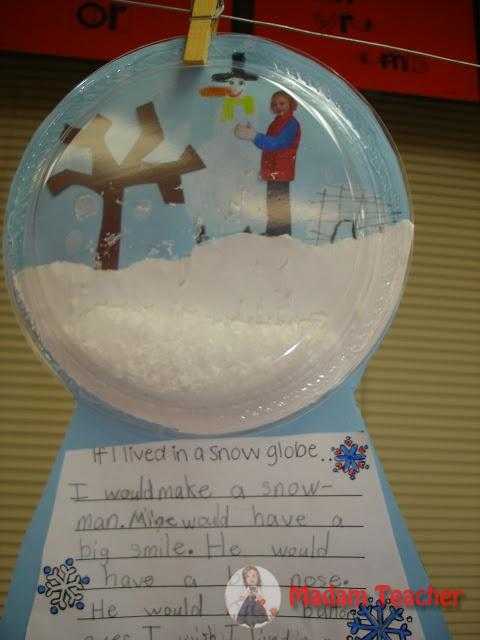 or
If I lived in a snow globe...
I would make a snow-
man. Mine would have a
big smile. He would
have a nose.
He would
I wish I
Madam Teacher